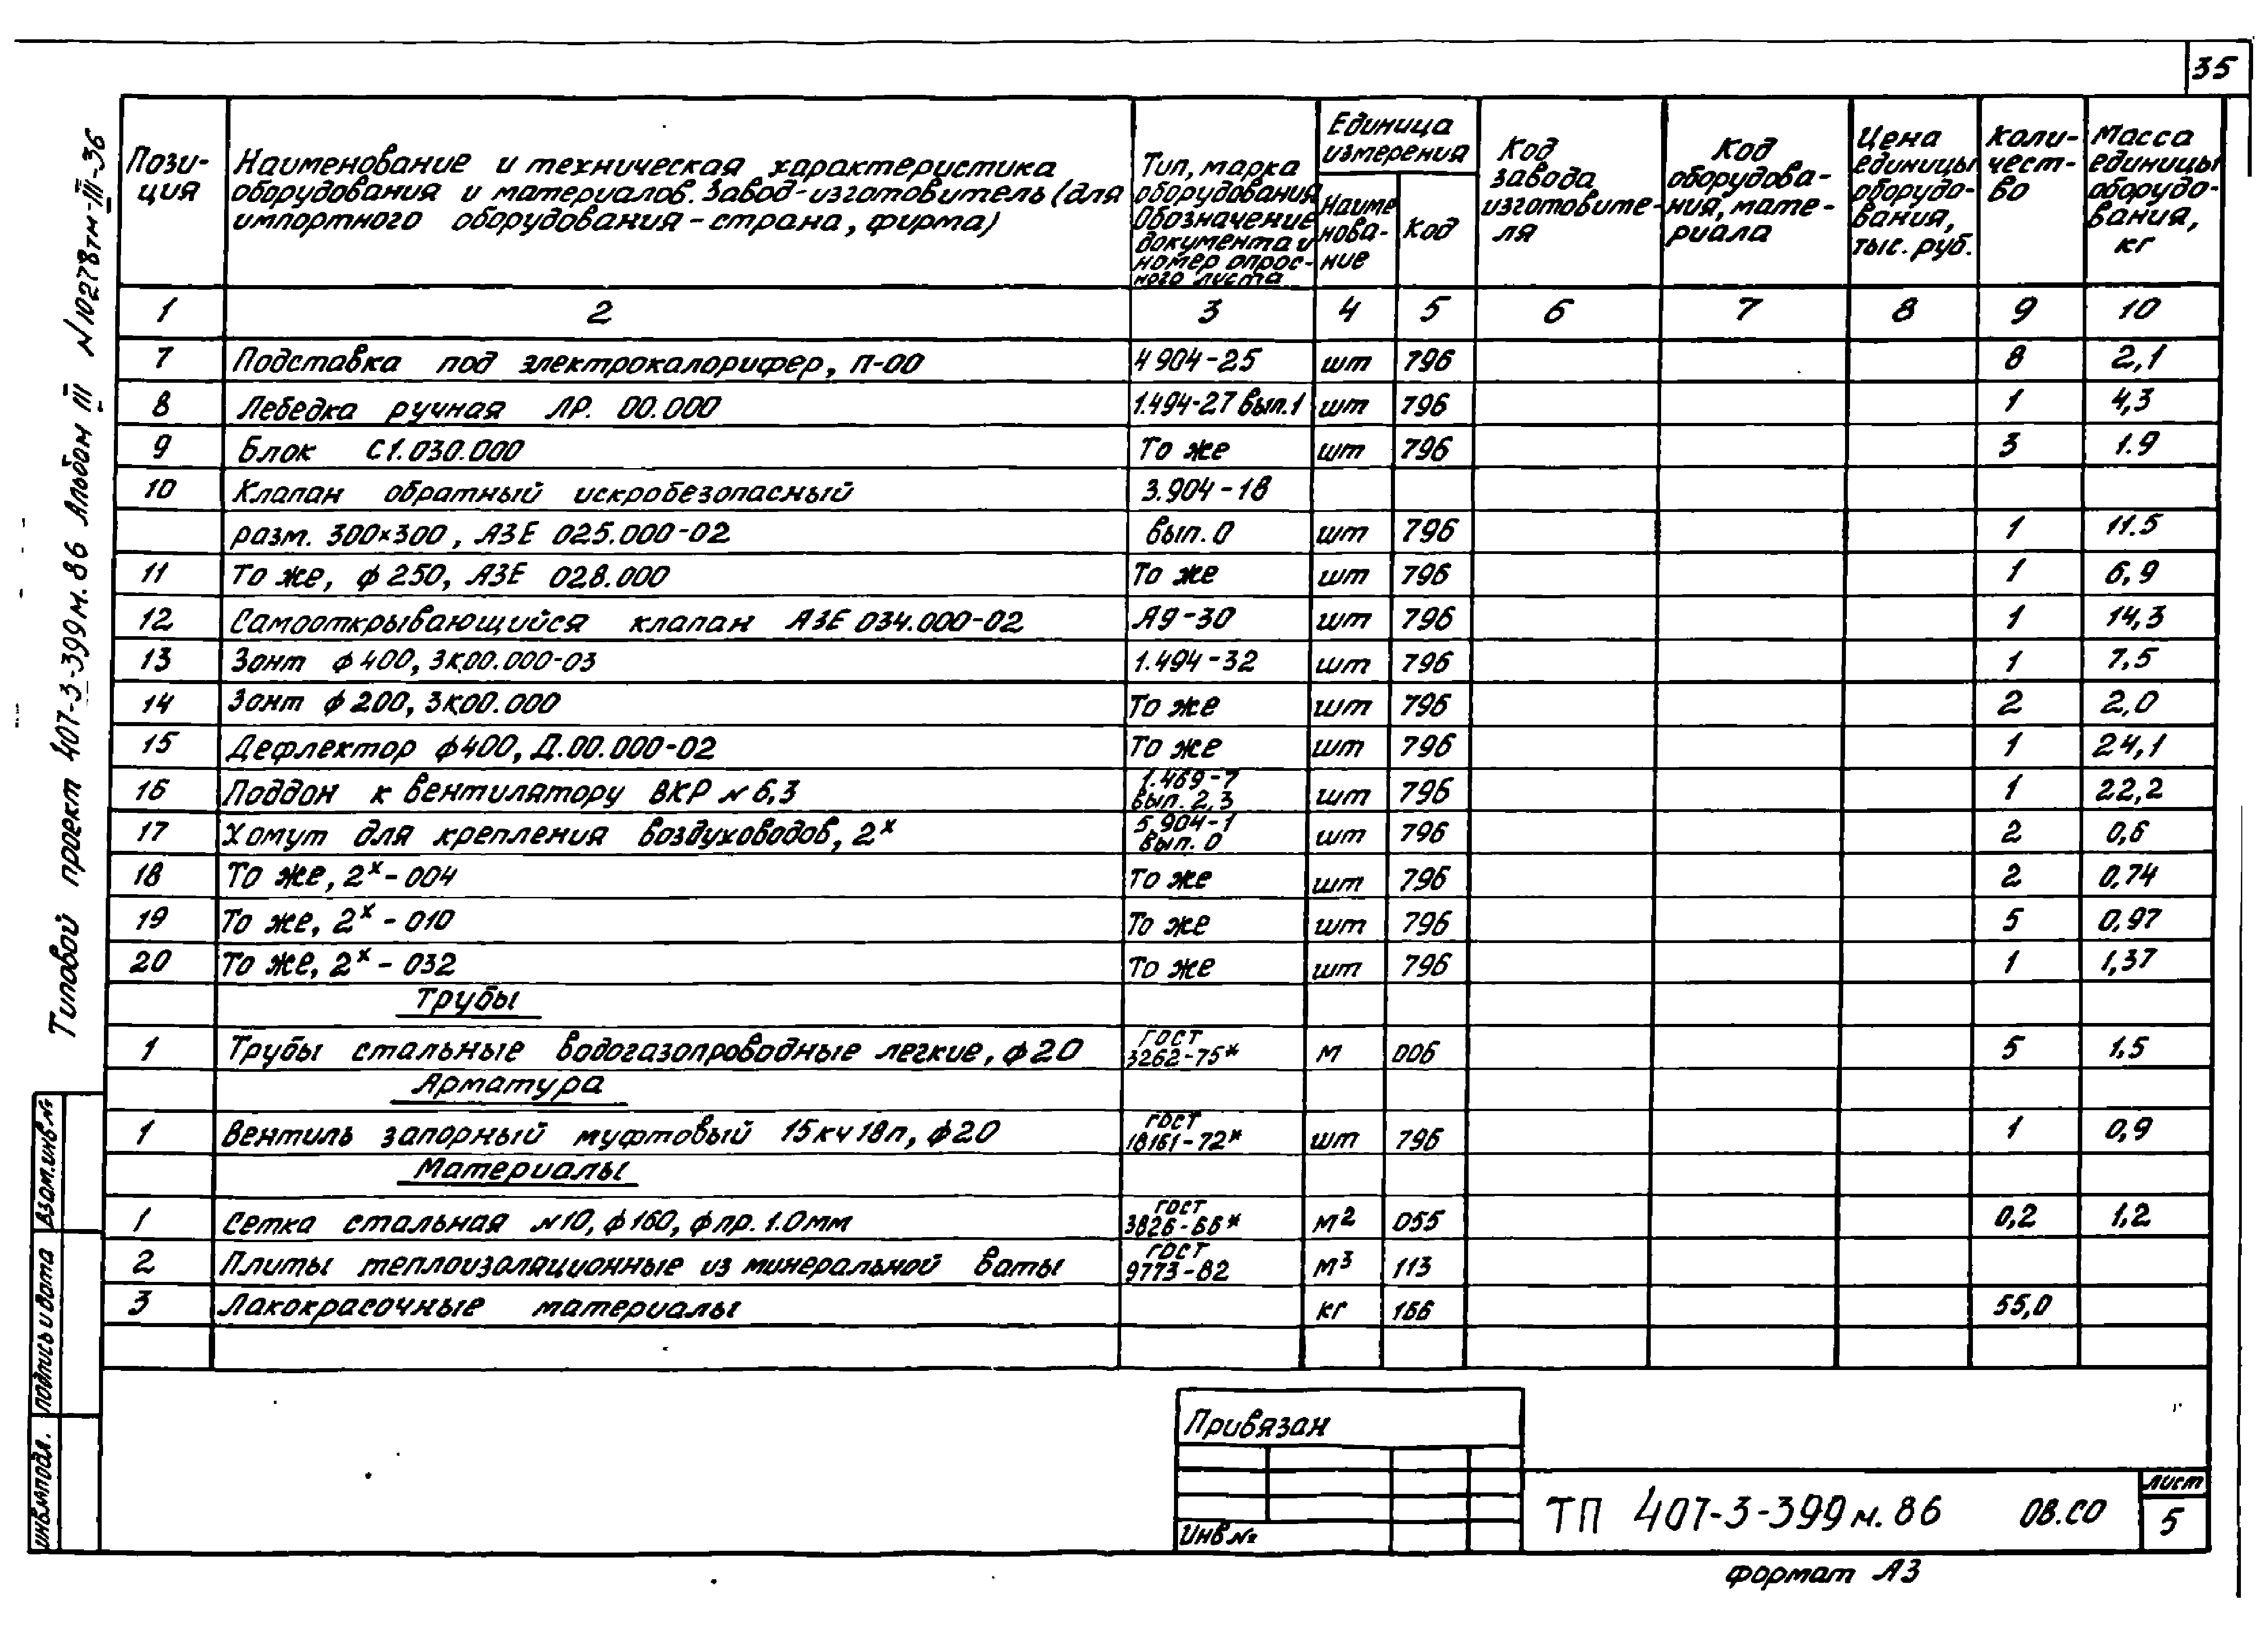 35
Типовой проект 407-3-399м.86 Альбом III N10278тм-III-36
Пози-
ция
Наименование и техническая характеристика
оборудования и материалов. Завод-изготовитель (для
импортного оборудования - страна, фирма)
Тип, марка
оборудования
Обозначение
документа и
номер опрос-
ного листа
Единица
измерения
Наиме
нова-
ние
Код
Код
завода
изготовите-
ля
Код
оборудова-
ния, мате-
риала
Цена
единицы
оборудо-
вания,
тыс. руб.
Коли-
чест-
во
Масса
единицы
оборудо-
вания,
кг
1 2 3 4 5 6 7 8 9 10
7 Подставка под электрокалорифер, П-00 4 904-25 шт 796 8 2,1
8 Лебедка ручная ЛР. 00.000 1.494-27 вып.1 шт 796 1 4,3
9 Блок С1.030.000 То же шт 796 3 1.9
10 Клапан обратный искробезопасный 3.904-18
разм. 300×300, АЗЕ 025.000-02 вып. 0 шт 796 1 11.5
11 То же, ф250, АЗЕ 028.000 То же шт 796 1 6,9
12 Самооткрывающийся клапан АЗЕ 034.000-02 А9-30 шт 796 1 14,3
13 Зонт ф400, ЗК00.000-03 1.494-32 шт 796 1 7,5
14 Зонт ф200, ЗК00.000 То же шт 796 2 2,0
15 Дефлектор ф400, Д.00.000-02 То же шт 796 1 24,1
16 Поддон к вентилятору ВКР N6,3 1.469-7 вып. 2,3 шт 796 1 22,2
17 Хомут для крепления воздуховодов, 2ˣ 5.904-1 вып. 0 шт 796 2 0,6
18 То же, 2ˣ-004 То же шт 796 2 0,74
19 То же, 2ˣ-010 То же шт 796 5 0,97
20 То же, 2ˣ-032 То же шт 796 1 1,37
Трубы
1 Трубы стальные водогазопроводные легкие, ф20 ГОСТ 3262-75* м 006 5 1,5
Арматура
1 Вентиль запорный муфтовый 15кч18п, ф20 ГОСТ 18161-72* шт 796 1 0,9
Материалы
1 Сетка стальная N10, ф160, фпр. 1.0мм ГОСТ 3826-66* м² 055 0,2 1,2
2 Плиты теплоизоляционные из минеральной ваты ГОСТ 9773-82 м³ 113
3 Лакокрасочные материалы кг 166 55,0
Взам.инв.№
Подпись и дата
Инв.№подл.
Привязан
Инв№
ТП 407-3-399м.86 ОВ.СО
Лист
5
Формат А3